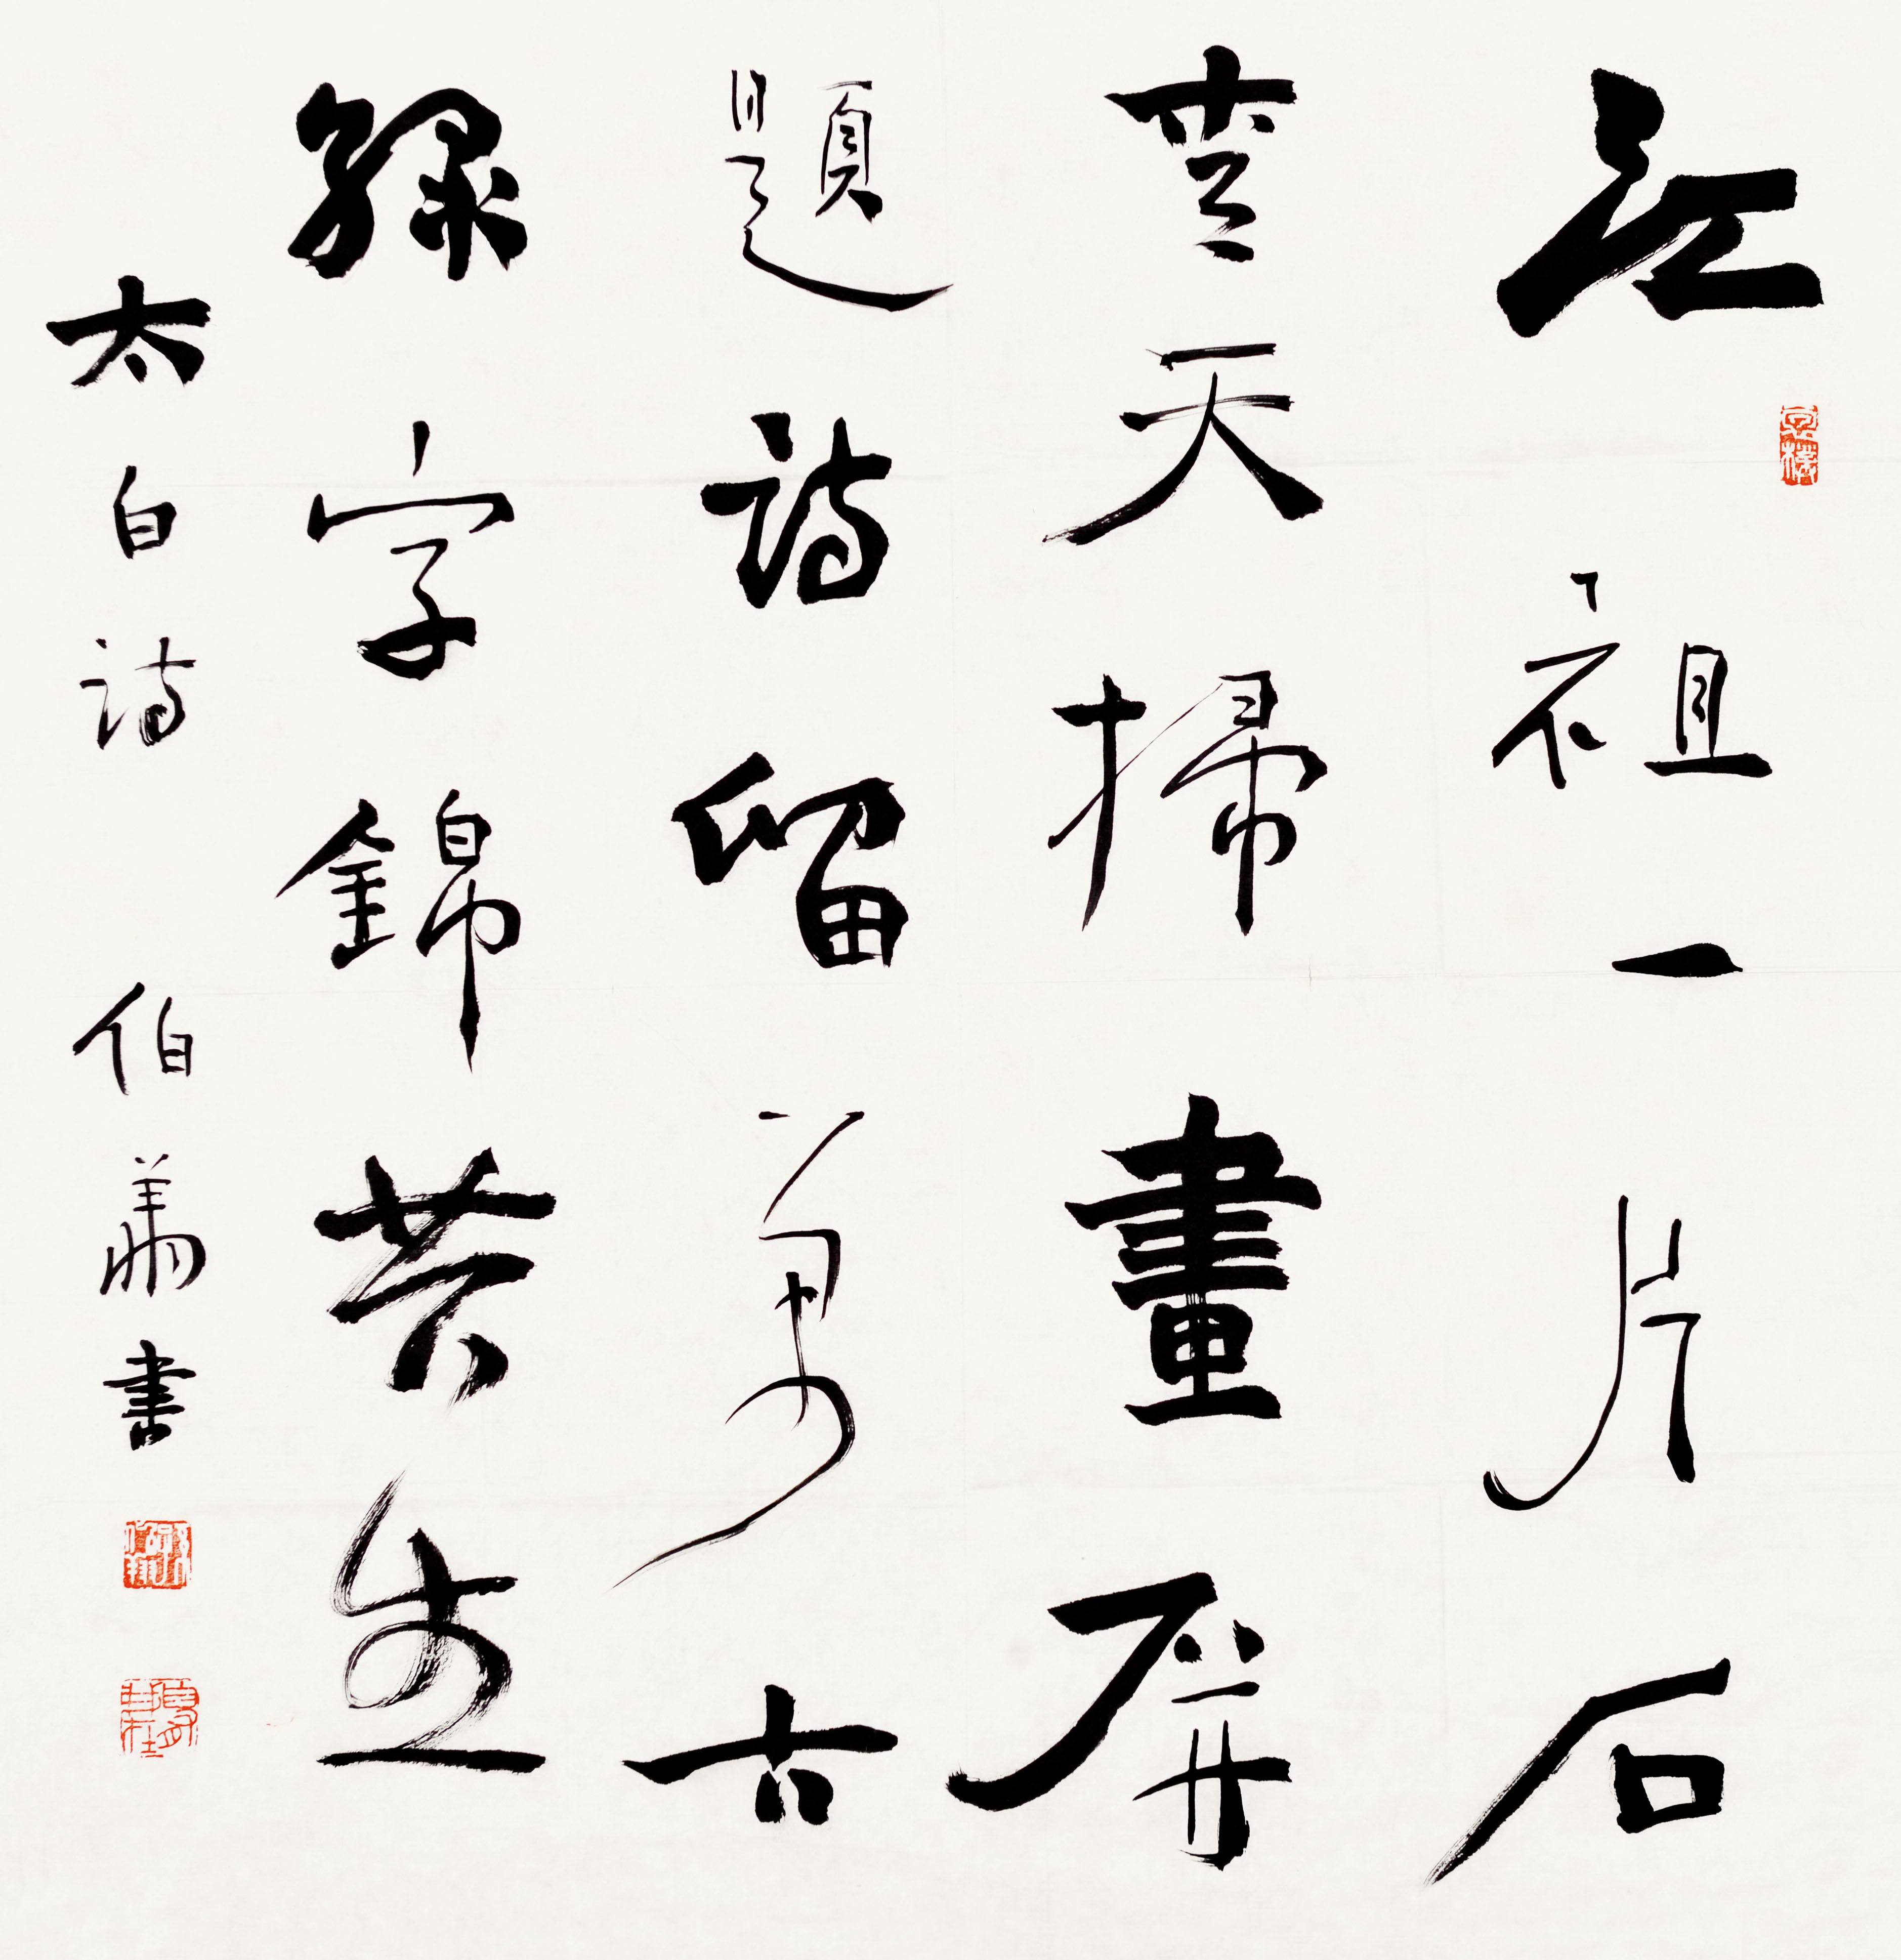 江祖一片石
青天掃畫屏
題詩留萬古
綠字錦苔生
太白詩 伯翔書